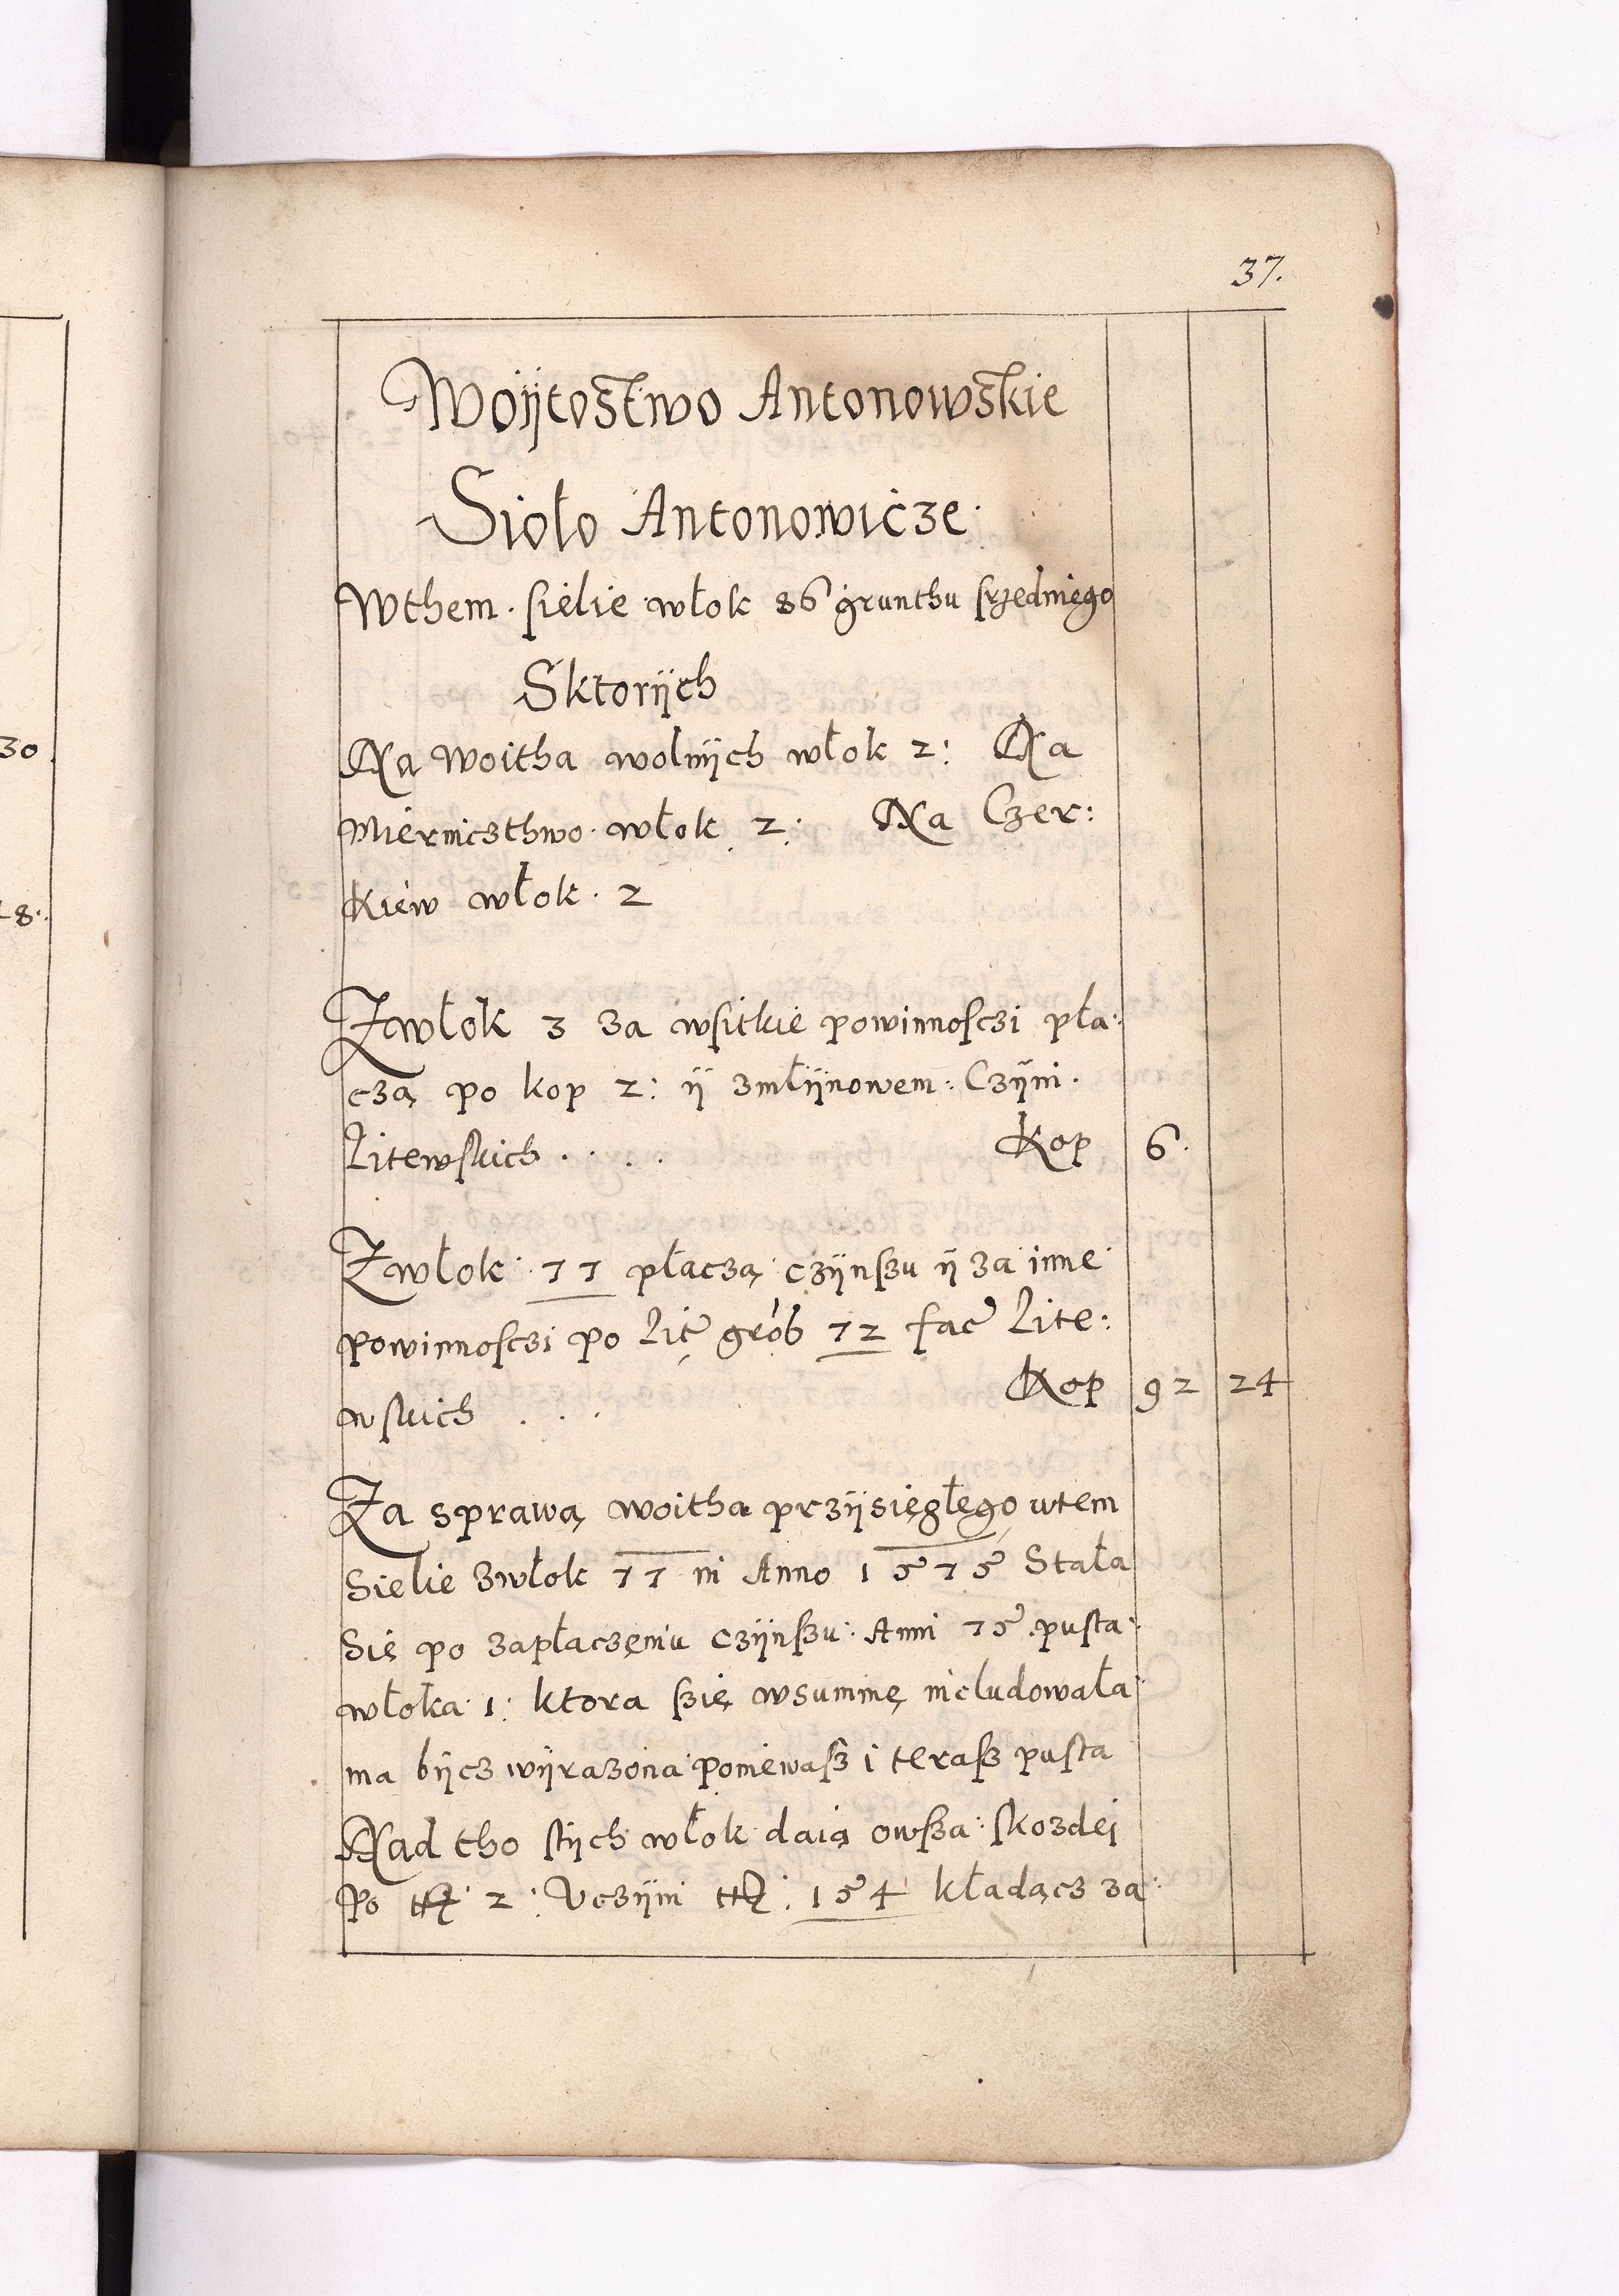 37.
Woÿtostwo Antonowskie
Sioło Antonowicze
Wthem sielie włok 86 grunthu srzedniego
Sktorÿch
Na Woitha wolnÿch włok 2: Na
Miernicsthwo włok 2: Na Czer:
kiew włok 2
30
28
Zwłok 3 za wsitkie powinnosczi pła:
czą po kop 2: ÿ zmłÿnowem: Czÿni
Litewskich . . . . Kop 6
Zwłok 77 płaczą czÿnszu ÿ za inne
powinnosczi po Lit gro 72 fac Lite:
wskich . . . Kop 92 24
Za sprawą woitha przÿsięgłego wtem
Sielie zwłok 77 in Anno 1575 Stała
Się po zapłaczeniu czÿnszu Anni 75 pusta
włoka 1: ktora szię wsummę includowała
ma bÿcz wÿrazona poniewasz i terasz pusta
Nad tho stÿch włok daią owsza skozdei
Po 2: Vczÿni 154 kładącz za: